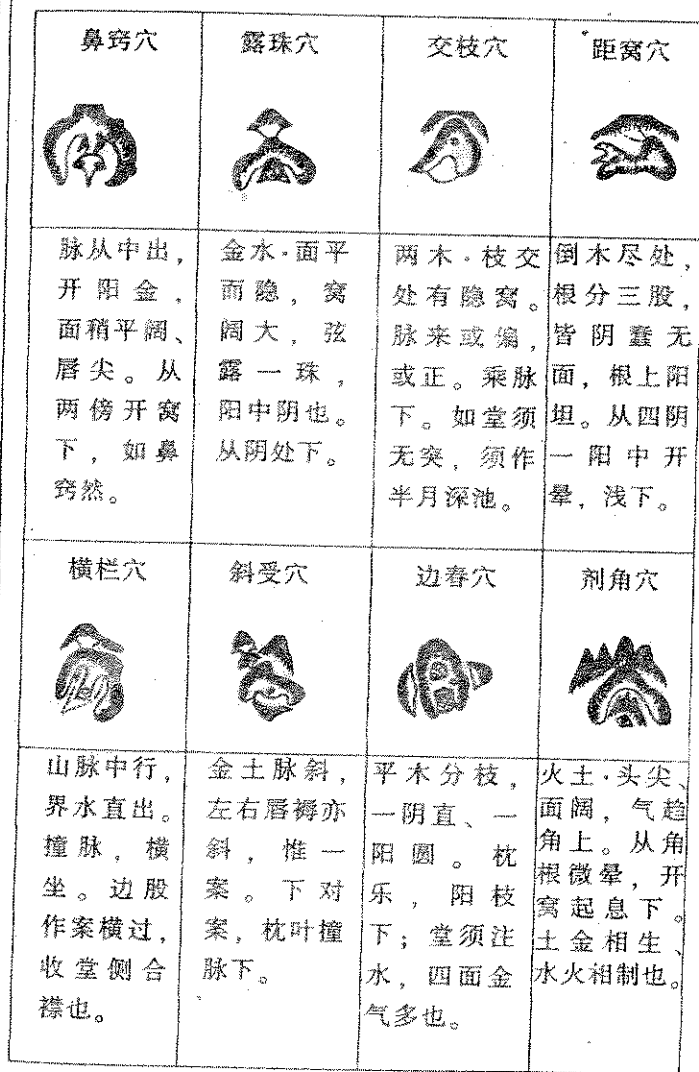 鼻窍穴
脉从中出，
开阳金，
面稍平阔、
唇尖。从
两傍开窝
下，如鼻
窍然。
露珠穴
金水·面平
而隐，窝
阔大，弦
露一珠，
阳中阴也。
从阴处下。
交枝穴
两木·枝交
处有隐窝。
脉来或偏，
或正。乘脉
下。如堂须
无突，须作
半月深池。
距窝穴
倒木尽处，
根分三股，
皆阴蠢无
面，根上阳
坦。从四阴
一阳中开
晕，浅下。
横栏穴
山脉中行，
界水直出。
撞脉，横
坐。边股
作案横过，
收堂侧合
襟也。
斜受穴
金土脉斜，
左右唇褥亦
斜，惟一
案。下对
案，枕叶撞
脉下。
边春穴
平木分枝，
一阴直、一
阳圆。枕
乐，阳枝
下；堂须注
水，四面金
气多也。
剂角穴
火土·头尖、
面阔，气趋
角上。从角
根微晕，开
窝起息下。
土金相生、
水火相制也。